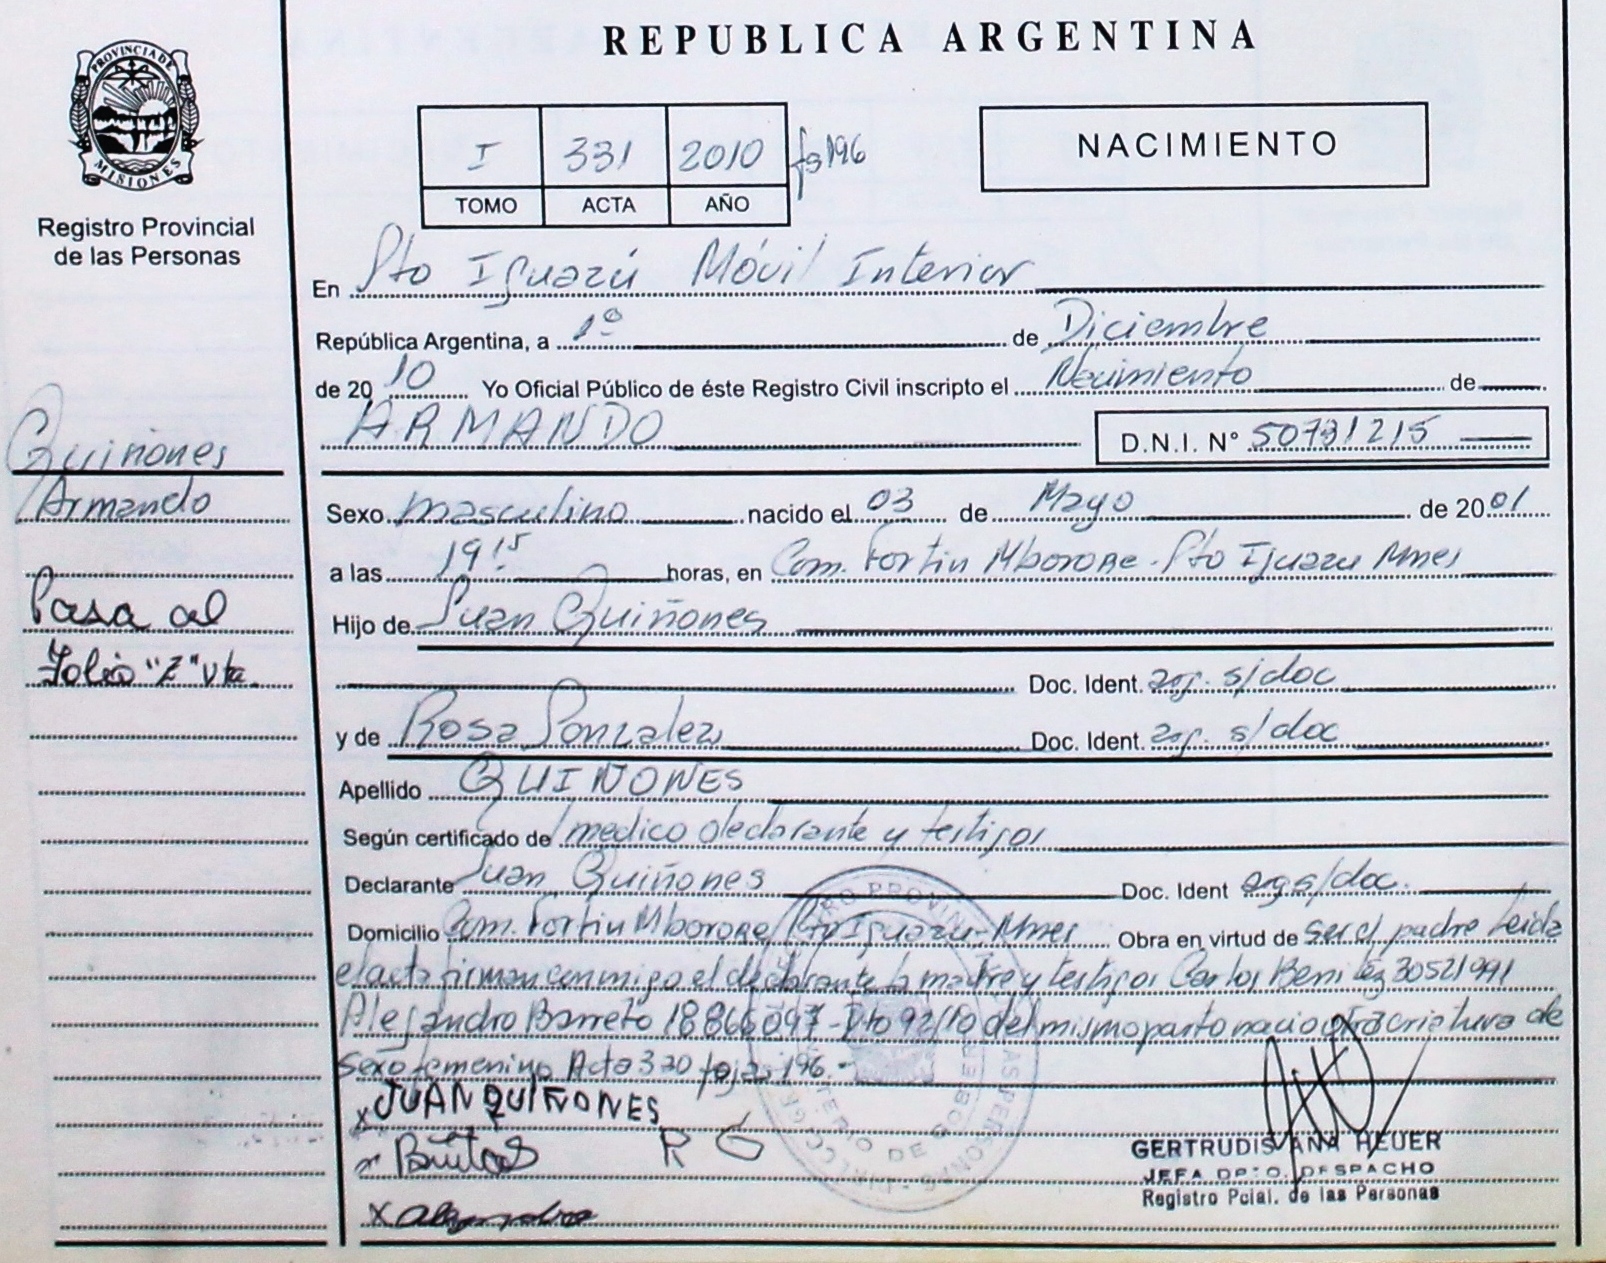 REPUBLICA ARGENTINA
PROVINCIA DE
MISIONES
Registro Provincial
de las Personas
I 331 2010 fs 196
TOMO ACTA AÑO
NACIMIENTO
En Pto Iguazú Móvil Interior
República Argentina, a 1º de Diciembre
de 2010 Yo Oficial Público de éste Registro Civil inscripto el Nacimiento de
ARMANDO D.N.I. Nº 50791215
Quiñones
Armando
Pasa al
Folio "2" vta.
Sexo masculino nacido el 03 de Mayo de 2001
a las 19:15 horas, en Com. Fortin Mborore - Pto Iguazu Mnes
Hijo de Juan Quiñones
Doc. Ident. arg. s/doc
y de Rosa Gonzalez Doc. Ident. arg. s/doc
Apellido QUIÑONES
Según certificado de medico declarante y testigos
Declarante Juan Quiñones Doc. Ident arg s/doc.
Domicilio Com. Fortin Mborore Pto Iguazu - Mnes Obra en virtud de ser el padre Leida
el acta firman conmigo el declarante la madre y testigos Carlos Benitez 30521991
Alejandro Barreto 18866097 - Dto 92/10 del mismo parto nacio otra criatura de
sexo femenino Acta 330 fojas 196.-
x JUAN QUIÑONES
R G
x
GERTRUDIS ANA HEUER
JEFA DPTO. DESPACHO
Registro Pcial. de las Personas